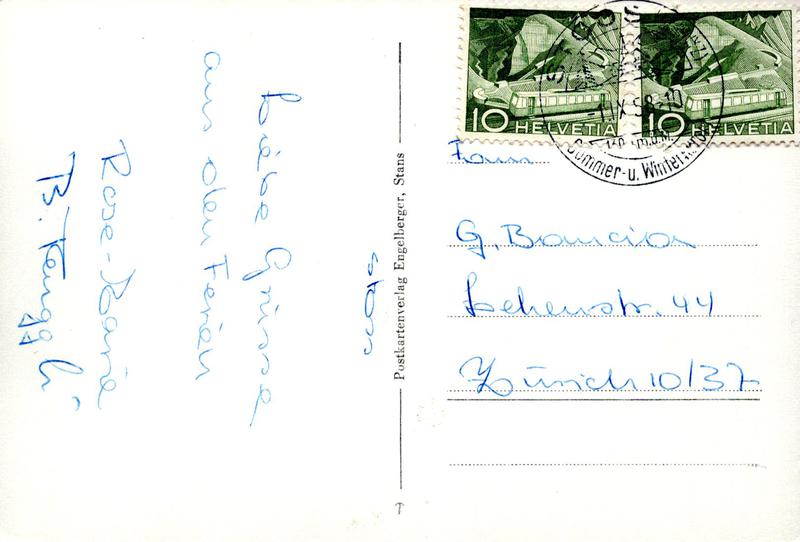 Stans
Liebe Grüsse
aus den Ferien
Rose-Marie
Postkartenverlag Engelberger, Stans
10 HELVETIA
10 HELVETIA
STANS
-1.IX.58-10
Sommer- u. Winter
Frau
G. Bancion
Lehenstr. 44
Zürich 10/37